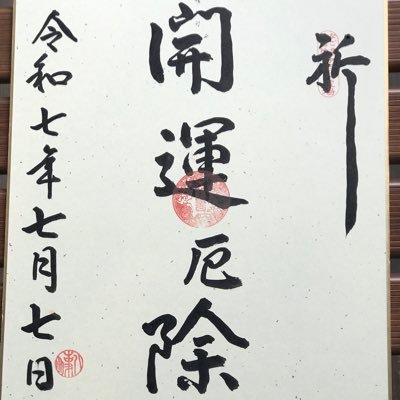 祈
開運厄除
令和七年七月七日